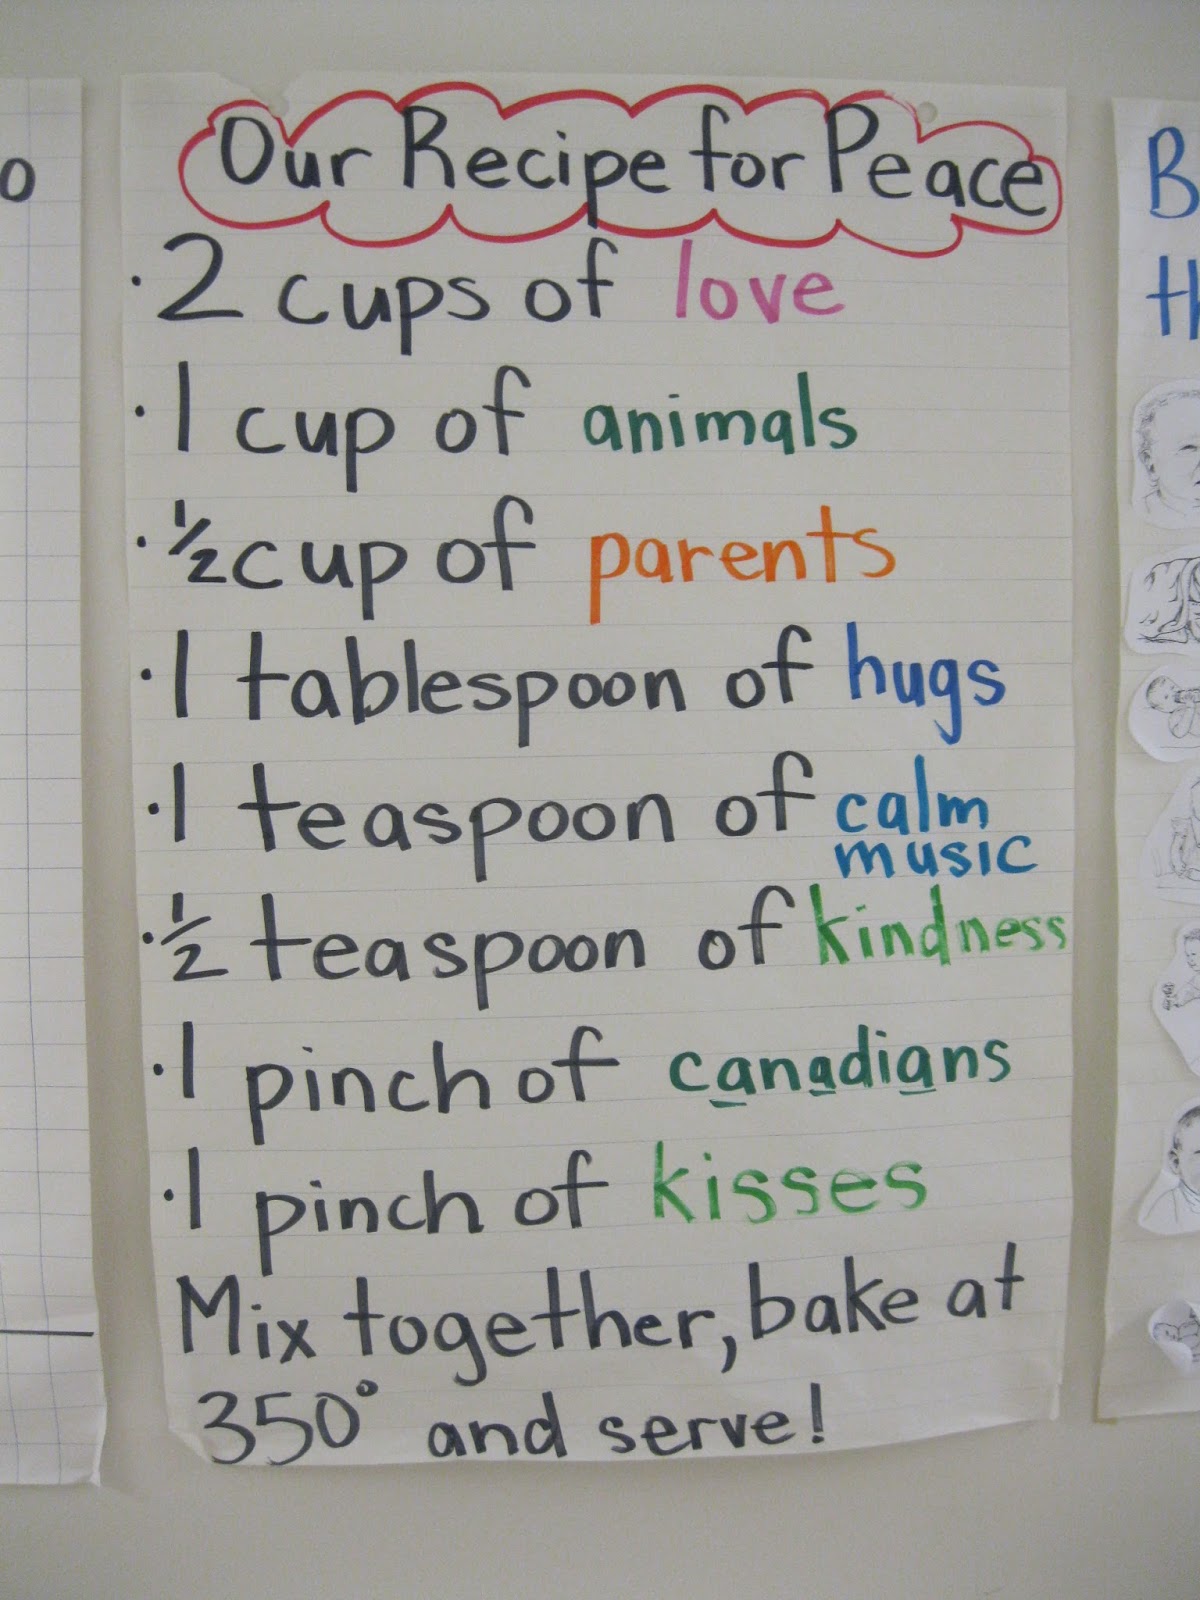 Our Recipe for Peace
· 2 cups of love
· 1 cup of animals
· ½ cup of parents
· 1 tablespoon of hugs
· 1 teaspoon of calm
music
· ½ teaspoon of kindness
· 1 pinch of canadians
· 1 pinch of kisses
Mix together, bake at
350° and serve!
o
B
th